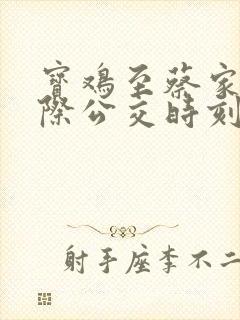 寶鸡至蔡家
際公交時刻
射手座李不二